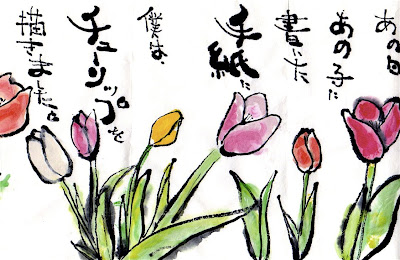 あの日
あの子に
書いた
手紙に
僕は、
チューリップを
描きました。